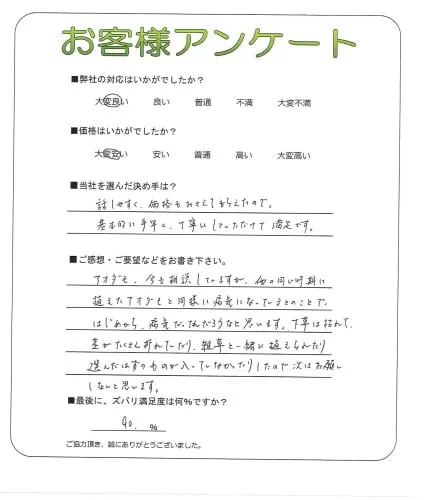 お客様アンケート
■弊社の対応はいかがでしたか？
大変良い 良い 普通 不満 大変不満
■価格はいかがでしたか？
大変安い 安い 普通 高い 大変高い
■当社を選んだ決め手は？
話しやすく、価格もおさえてもらえたので。
基本的に手早く、丁寧にしていただけて満足です。
■ご感想・ご要望などをお書き下さい。
アオダモ、今も相談していますが、他の同い時期に
植えたアオダモと同様に病気になっているとのことで、
はじめから、病気だったんだろうなと思います。下草は枯れて、
茎がたくさん折れていたり、雑草と一緒に植えられたり
選んだはずのものが入っていなかったりしたので次はお願い
しないと思います。
■最後に、ズバリ満足度は何％ですか？
90. ％
ご協力頂き、誠にありがとうございました。